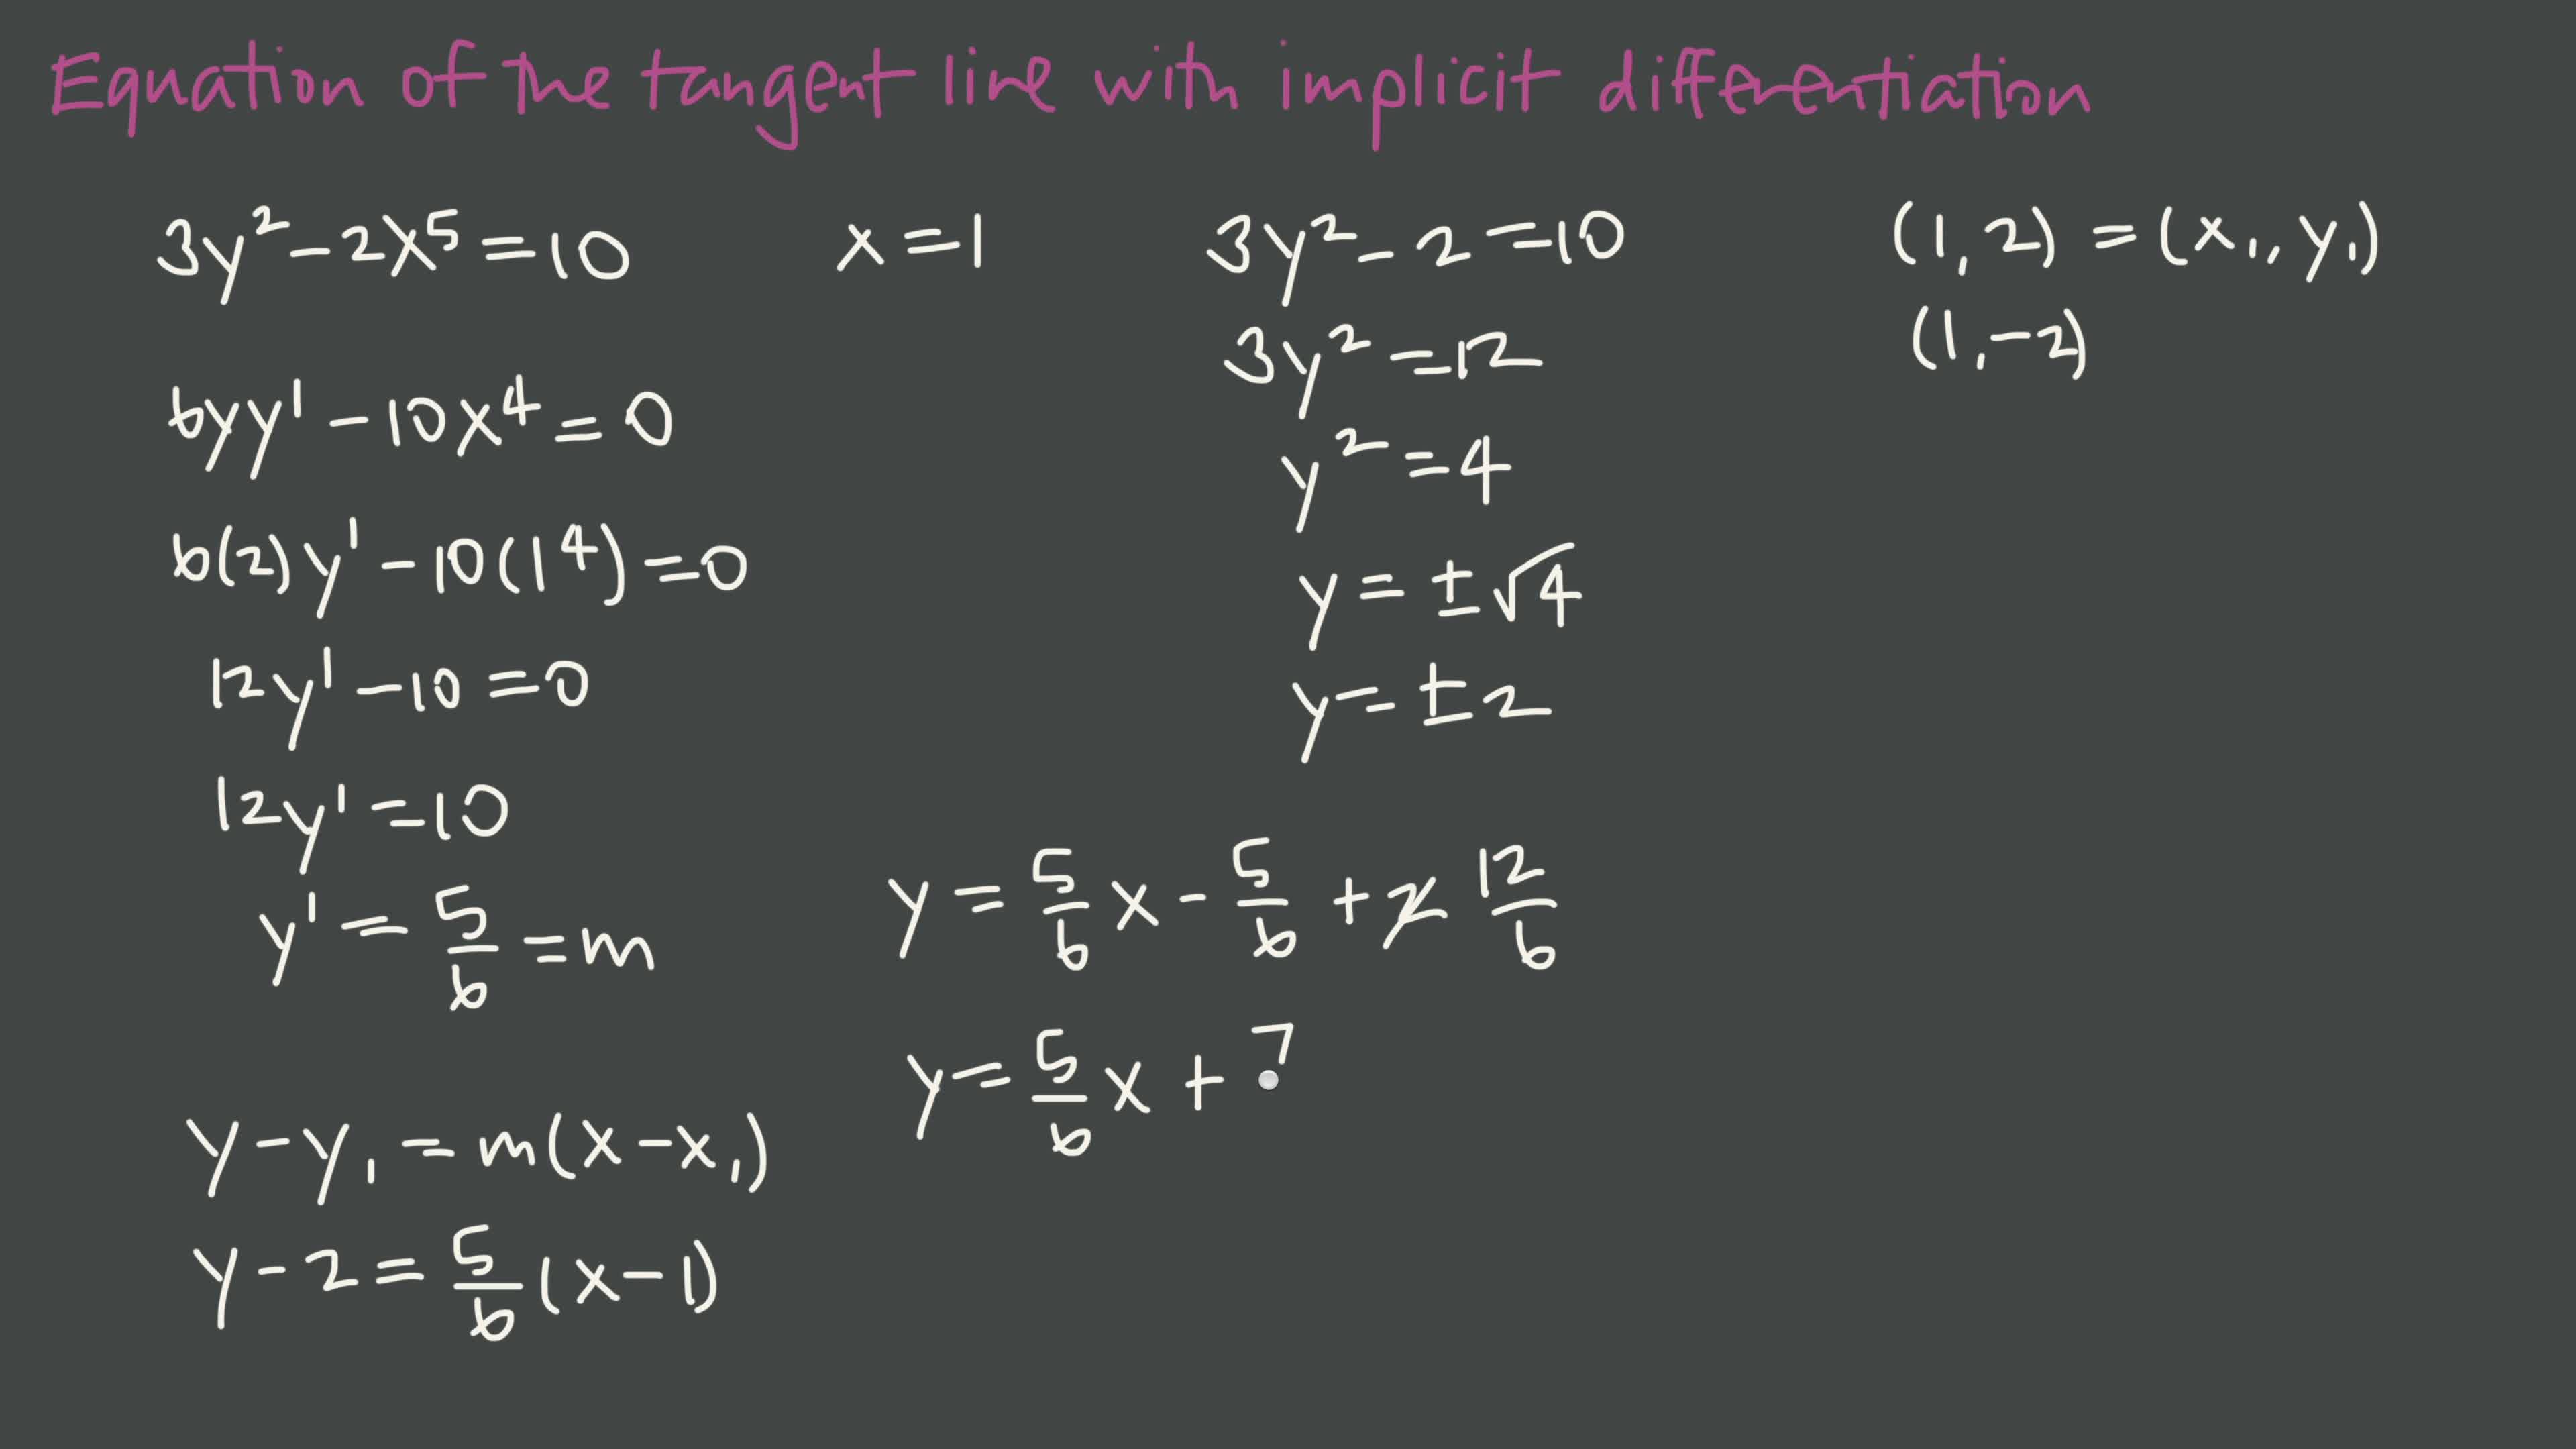 Equation of the tangent line with implicit differentiation
3y² - 2x⁵ = 10
6yy' - 10x⁴ = 0
6(2)y' - 10(1⁴) = 0
12y' - 10 = 0
12y' = 10
y' = 5/6 = m
y - y₁ = m(x - x₁)
y - 2 = 5/6 (x - 1)
x = 1
3y² - 2 = 10
3y² = 12
y² = 4
y = ±√4
y = ±2
y = 5/6 x - 5/6 + 2 12/6
y = 5/6 x + 7
(1, 2) = (x₁, y₁)
(1, -2)